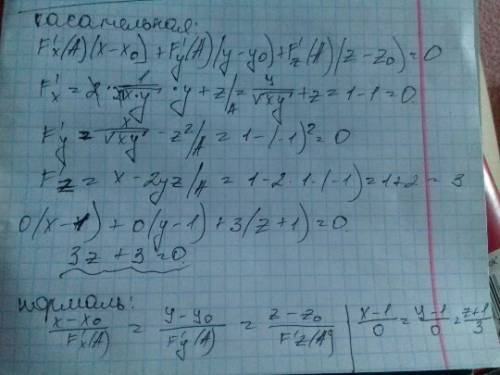 касательная:
F'x(A)(x-x₀)+F'y(A)(y-y₀)+F'z(A)(z-z₀)=0
F'x = 2·1/(2√x·y)·y+z/A = y/√xy + z = 1-1=0
F'y = x/√xy - z²/A = 1-(-1)²=0
Fz = x-2yz/A = 1-2·1·(-1)=1+2=3
0(x-1)+0(y-1)+3(z+1)=0
3z+3=0
нормаль:
(x-x₀)/F'x(A) = (y-y₀)/F'y(A) = (z-z₀)/F'z(A) | (x-1)/0 = (y-1)/0 = (z+1)/3